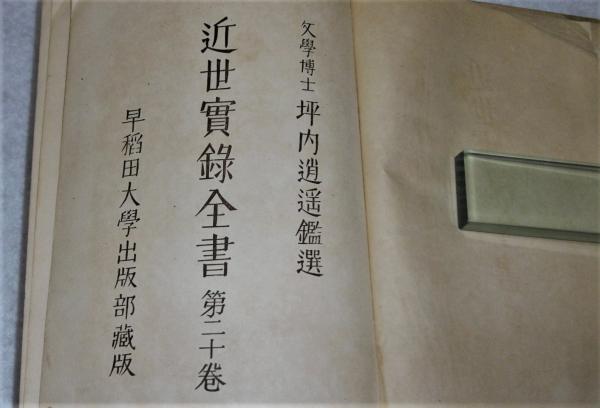 文學博士 坪内逍遥鑑選
近世實錄全書 第二十卷
早稻田大學出版部藏版